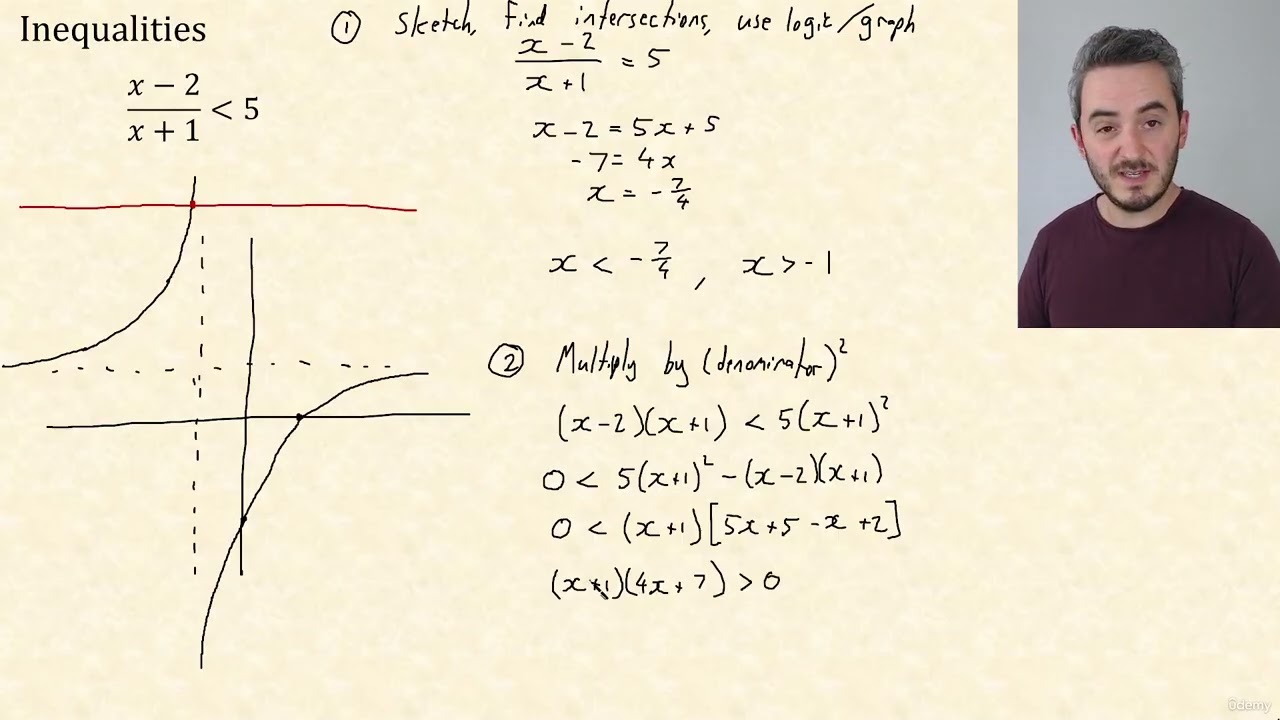 Inequalities
x − 2 / x + 1 < 5
① Sketch, find intersections, use logic/graph
x − 2 / x + 1 = 5
x − 2 = 5x + 5
-7 = 4x
x = -7/4
x < -7/4 , x > -1
② Multiply by (denominator)²
(x − 2)(x + 1) < 5(x + 1)²
0 < 5(x+1)² − (x − 2)(x + 1)
0 < (x + 1)[5x + 5 − x + 2]
(x + 1)(4x + 7) > 0
ûdemy